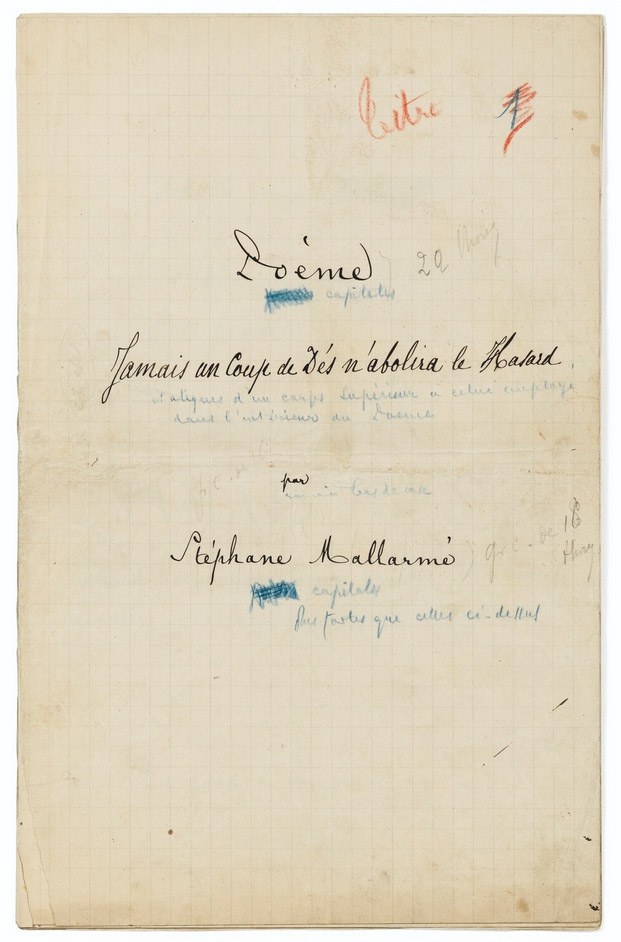 titre 1
Poëme
29
capitales
Jamais un Coup de Dés n'abolira le Hasard
italiques d'un corps supérieur à celui employé
dans l'intérieur du Poëme
par
romain bas de casse
Stéphane Mallarmé
gr c. de 16
capitales
plus fortes que celles ci-dessus